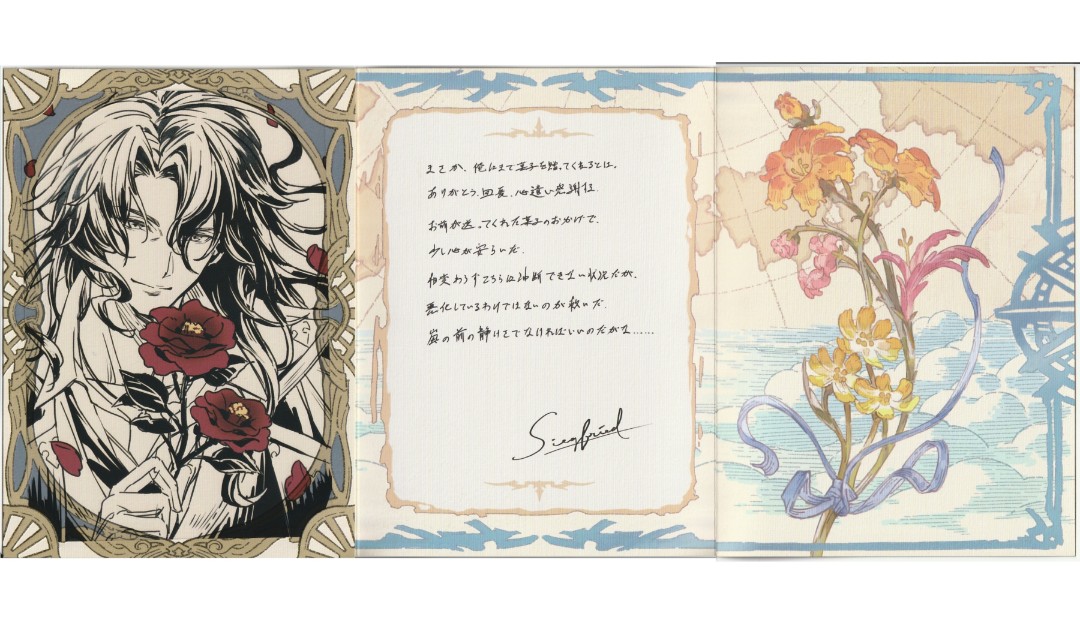 まさか、俺にまで菓子を贈ってくれるとは。
ありがとう、団長、心遣い感謝する
お前が送ってくれた菓子のおかげで、
少し心が安らいだ。
相変わらずこちらは油断できない状況だが、
悪化しているわけではないのが救いだ。
嵐の前の静けさでなければいいのだがな……
Siegfried